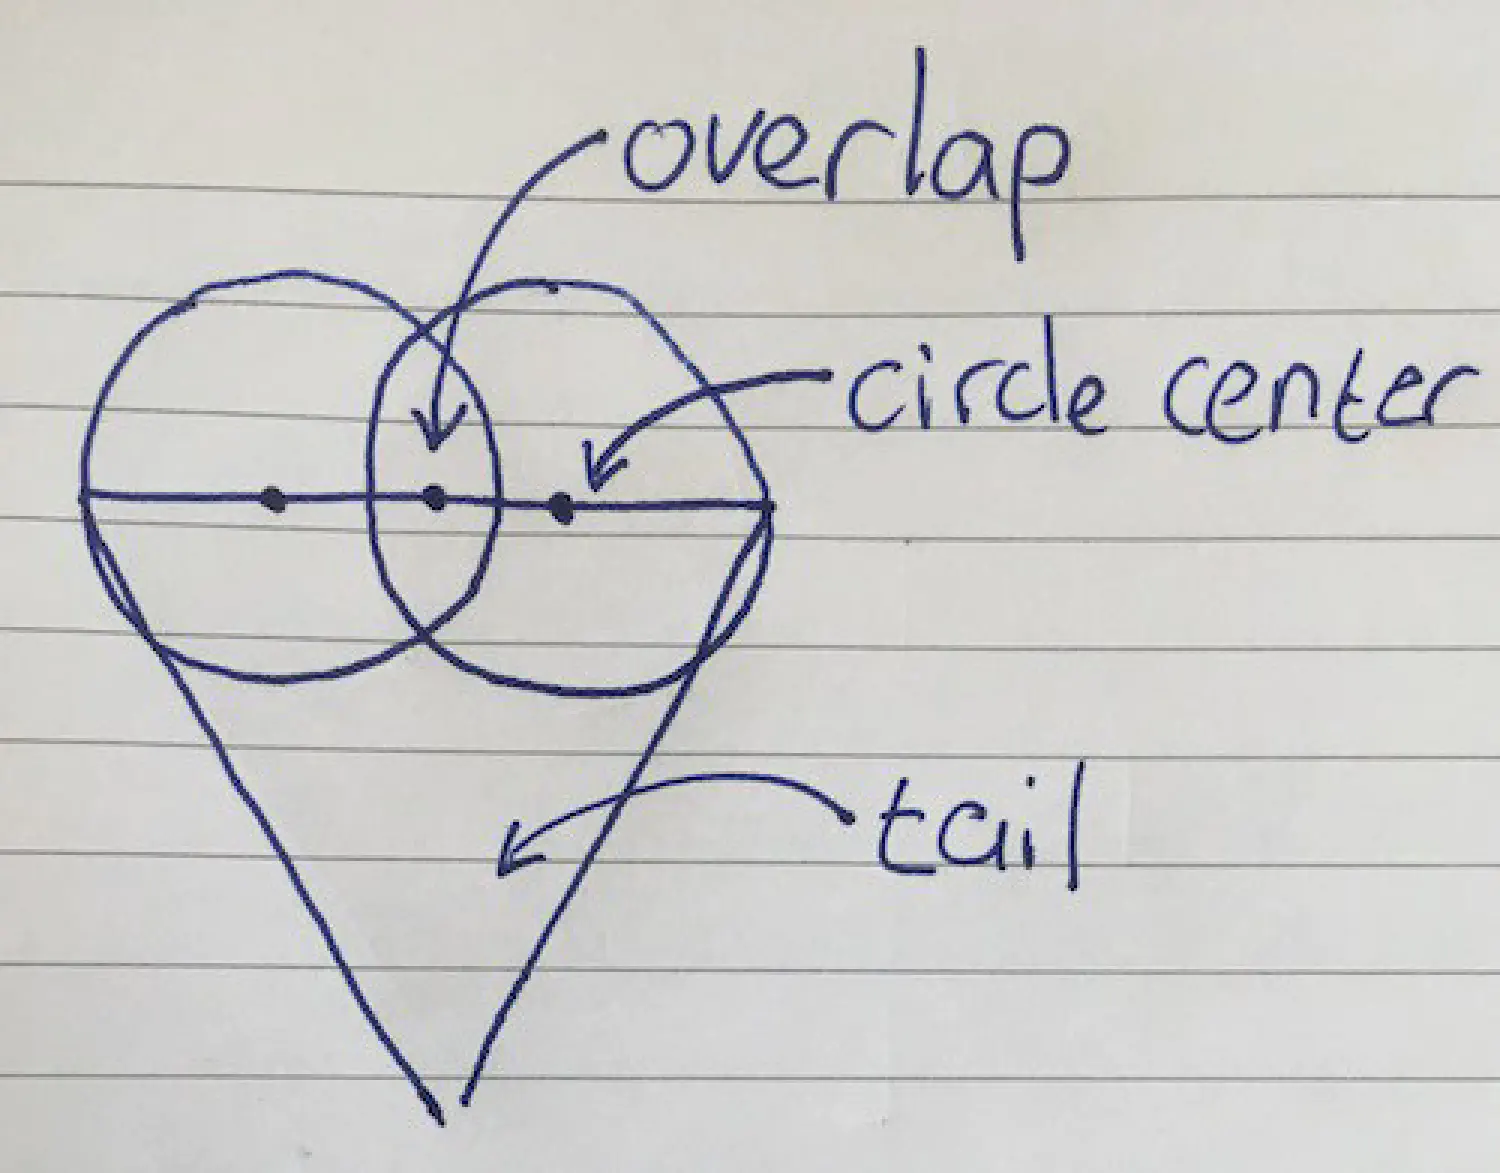 overlap
circle center
tail